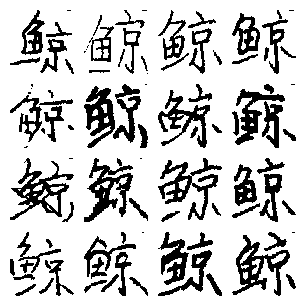 鲸鲸鲸鲸
鲸鲸鲸鲸
鲸鲸鲸鲸
鲸鲸鲸鲸